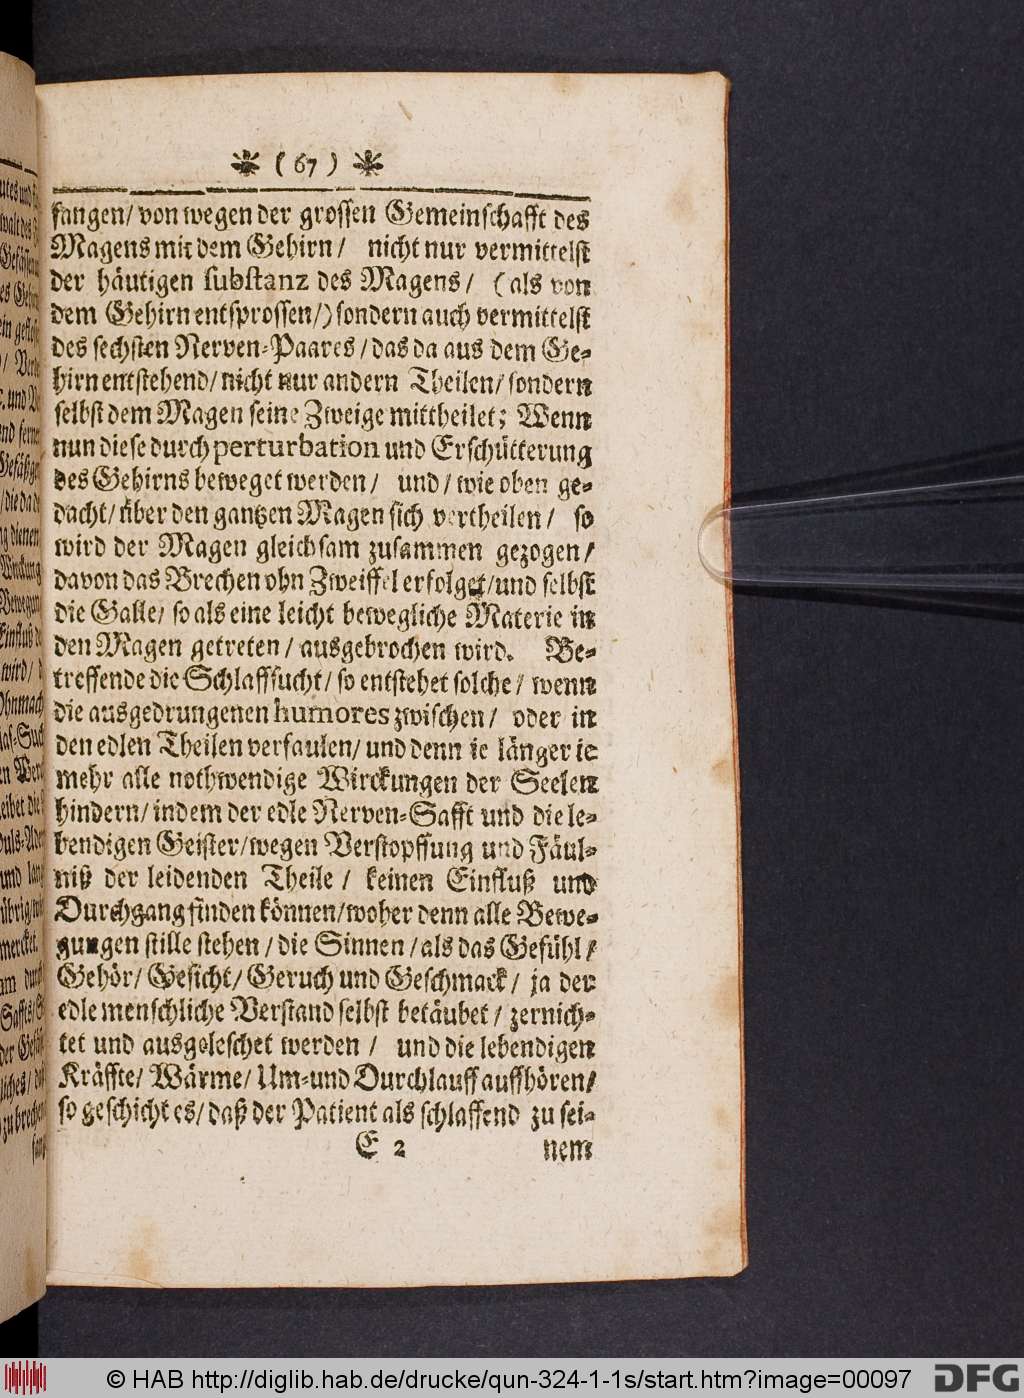 ( 67 )
fangen/ von wegen der grossen Gemeinschafft des
Magens mit dem Gehirn/ nicht nur vermittelst
der häutigen substanz des Magens/ (als von
dem Gehirn entsprossen/) sondern auch vermittelst
des sechsten Nerven-Paares/ das da aus dem Ge-
hirn entstehend/ nicht nur andern Theilen/ sondern
selbst dem Magen seine Zweige mittheilet; Wenn
nun diese durch perturbation und Erschütterung
des Gehirns beweget werden/ und/ wie oben ge-
dacht/ über den gantzen Magen sich vertheilen/ so
wird der Magen gleichsam zusammen gezogen/
davon das Brechen ohn Zweiffel erfolget/ und selbst
die Galle/ so als eine leicht bewegliche Materie in
den Magen getreten/ ausgebrochen wird. Be-
treffende die Schlaffsucht/ so entstehet solche/ wenn
die ausgedrungenen humores zwischen/ oder in
den edlen Theilen verfaulen/ und denn ie länger ie
mehr alle nothwendige Wirckungen der Seelen
hindern/ indem der edle Nerven-Safft und die le-
bendigen Geister/ wegen Verstopffung und Fäul-
niß der leidenden Theile/ keinen Einfluß und
Durchgang finden können/ woher denn alle Bewe-
gungen stille stehen/ die Sinnen/ als das Gefühl/
Gehör/ Gesicht/ Geruch und Geschmack/ ja der
edle menschliche Verstand selbst betäubet/ zernich-
tet und ausgeleschet werden/ und die lebendigen
Kräffte/ Wärme/ Um- und Durchlauff auffhören/
so geschicht es/ daß der Patient als schlaffend zu sei-
E 2 nem
© HAB http://diglib.hab.de/drucke/qun-324-1-1s/start.htm?image=00097
DFG